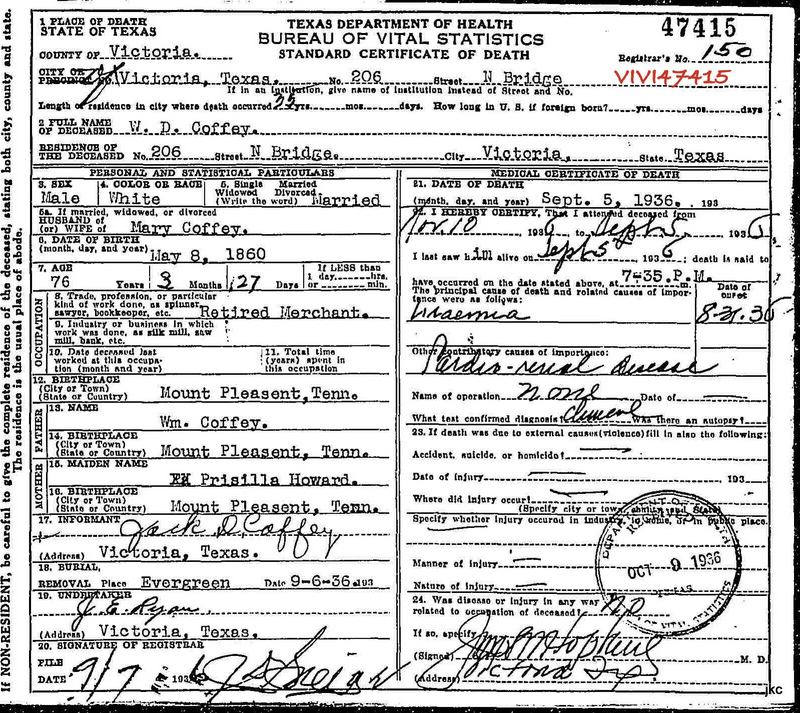 If NON-RESIDENT, be careful to give the complete residence of the deceased, stating both city, county and state.
The residence is the usual place of abode.
1 PLACE OF DEATH
STATE OF TEXAS
COUNTY OF Victoria.
TEXAS DEPARTMENT OF HEALTH
BUREAU OF VITAL STATISTICS
STANDARD CERTIFICATE OF DEATH
47415
Registrar's No. 150
CITY OR PRECINCT NO. Victoria, Texas. No. 206 Street N Bridge VIVI47415
If in an institution, give name of institution instead of Street and No.
Length of residence in city where death occurred 35 yrs. mos. days. How long in U. S. if foreign born? yrs. mos. days
2 FULL NAME
OF DECEASED W. D. Coffey.
RESIDENCE OF
THE DECEASED No. 206 Street N Bridge. City Victoria, State Texas
PERSONAL AND STATISTICAL PARTICULARS
3. SEX Male
4. COLOR OR RACE White
5. Single Married
Widowed Divorced
(Write the word) Married
5a. If married, widowed, or divorced
HUSBAND OF
(or) WIFE of Mary Coffey.
6. DATE OF BIRTH
(month, day, and year) May 8, 1860
7. AGE
76 Years 3 Months 27 Days
If LESS than
1 day, hrs.
or min.
OCCUPATION
8. Trade, profession, or particular
kind of work done, as spinner,
sawyer, bookkeeper, etc. Retired Merchant.
9. Industry or business in which
work was done, as silk mill, saw
mill, bank, etc.
10. Date deceased last
worked at this occupa-
tion (month and year)
11. Total time
(years) spent in
this occupation
12. BIRTHPLACE
(City or Town)
(State or Country) Mount Pleasent, Tenn.
FATHER
13. NAME
Wm. Coffey.
14. BIRTHPLACE
(City or Town)
(State or Country) Mount Pleasent, Tenn.
MOTHER
15. MAIDEN NAME
Prisilla Howard.
16. BIRTHPLACE
(City or Town)
(State or Country) Mount Pleasent, Tenn.
17. INFORMANT Jack D. Coffey
(Address) Victoria, Texas.
18. BURIAL,
REMOVAL Place Evergreen Date 9-6-36. 193
19. UNDERTAKER
(Address) Victoria, Texas.
20. SIGNATURE OF REGISTRAR
FILE
DATE 9/7 193
MEDICAL CERTIFICATE OF DEATH
21. DATE OF DEATH
(month, day, and year) Sept. 5, 1936. 193
22. I HEREBY CERTIFY, That I attended deceased from
Nov. 10 1936 to Sept 5 1936
I last saw him alive on Sept 5 1936; death is said to
have occurred on the date stated above, at 7-35.P.M. m.
The principal cause of death and related causes of impor-
tance were as follows:
Date of
onset
Uraemia 8-31-36
Other contributory causes of importance:
Cardio-renal disease
Name of operation none Date of
What test confirmed diagnosis? Clinical Was there an autopsy?
23. If death was due to external causes (violence) fill in also the following:
Accident, suicide, or homicide?
Date of injury 193
Where did injury occur?
(Specify city or town, county and State)
Specify whether injury occured in industry, in home, or in public place.
Manner of injury
Nature of injury
24. Was disease or injury in any way
related to occupation of deceased? no
If so, specify
(Signed) M. D.
(Address) Victoria Tex
OCT 9 1936
TEXAS
OF VITAL STATISTICS
jkc